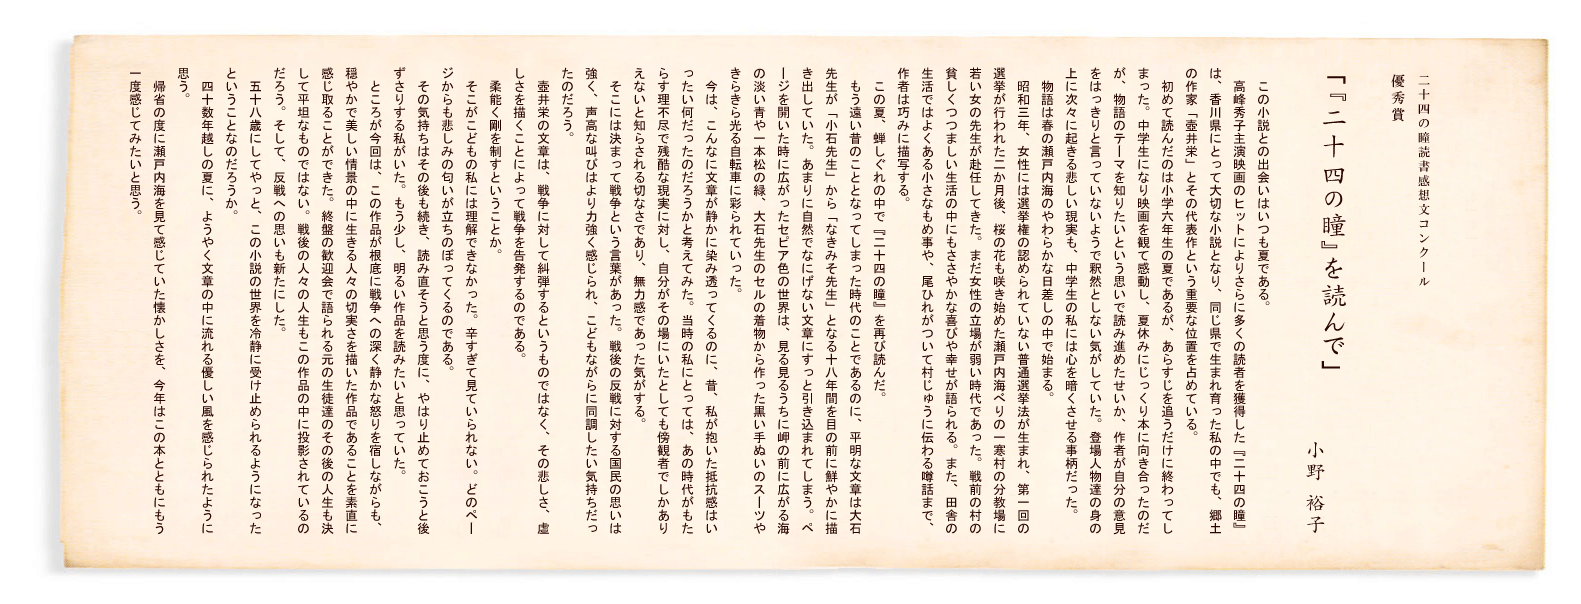 二十四の瞳読書感想文コンクール
優秀賞
「『二十四の瞳』を読んで」
小野 裕子
この小説との出会いはいつも夏である。
高峰秀子主演映画のヒットによりさらに多くの読者を獲得した『二十四の瞳』
は、香川県にとって大切な小説となり、同じ県で生まれ育った私の中でも、郷土
の作家「壺井栄」とその代表作という重要な位置を占めている。
初めて読んだのは小学六年生の夏であるが、あらすじを追うだけに終わってし
まった。中学生になり映画を観て感動し、夏休みにじっくり本に向き合ったのだ
が、物語のテーマを知りたいという思いで読み進めたせいか、作者が自分の意見
をはっきりと言っていないようで釈然としない気がしていた。登場人物達の身の
上に次々に起きる悲しい現実も、中学生の私には心を暗くさせる事柄だった。
物語は春の瀬戸内海のやわらかな日差しの中で始まる。
昭和三年、女性には選挙権の認められていない普通選挙法が生まれ、第一回の
選挙が行われた二か月後、桜の花も咲き始めた瀬戸内海べりの一寒村の分教場に
若い女の先生が赴任してきた。まだ女性の立場が弱い時代であった。戦前の村の
貧しくつつましい生活の中にもささやかな喜びや幸せが語られる。また、田舎の
生活ではよくある小さなもめ事や、尾ひれがついて村じゅうに伝わる噂話まで、
作者は巧みに描写する。
この夏、蝉しぐれの中で『二十四の瞳』を再び読んだ。
もう遠い昔のこととなってしまった時代のことであるのに、平明な文章は大石
先生が「小石先生」から「なきみそ先生」となる十八年間を目の前に鮮やかに描
き出していた。あまりに自然でなにげない文章にすっと引き込まれてしまう。ペ
ージを開いた時に広がったセピア色の世界は、見る見るうちに岬の前に広がる海
の淡い青や一本松の緑、大石先生のセルの着物から作った黒い手ぬいのスーツや
きらきら光る自転車に彩られていった。
今は、こんなに文章が静かに染み透ってくるのに、昔、私が抱いた抵抗感はい
ったい何だったのだろうかと考えてみた。当時の私にとっては、あの時代がもた
らす理不尽で残酷な現実に対し、自分がその場にいたとしても傍観者でしかあり
えないと知らされる切なさであり、無力感であった気がする。
そこには決まって戦争という言葉があった。戦後の反戦に対する国民の思いは
強く、声高な叫びはより力強く感じられ、こどもながらに同調したい気持ちだっ
たのだろう。
壺井栄の文章は、戦争に対して糾弾するというものではなく、その悲しさ、虚
しさを描くことによって戦争を告発するのである。
柔能く剛を制すということか。
そこがこどもの私には理解できなかった。辛すぎて見ていられない。どのペー
ジからも悲しみの匂いが立ちのぼってくるのである。
その気持ちはその後も続き、読み直そうと思う度に、やはり止めておこうと後
ずさりする私がいた。もう少し、明るい作品を読みたいと思っていた。
ところが今回は、この作品が根底に戦争への深く静かな怒りを宿しながらも、
穏やかで美しい情景の中に生きる人々の切実さを描いた作品であることを素直に
感じ取ることができた。終盤の歓迎会で語られる元の生徒達のその後の人生も決
して平坦なものではない。戦後の人々の人生もこの作品の中に投影されているの
だろう。そして、反戦への思いも新たにした。
五十八歳にしてやっと、この小説の世界を冷静に受け止められるようになった
ということなのだろうか。
四十数年越しの夏に、ようやく文章の中に流れる優しい風を感じられたように
思う。
帰省の度に瀬戸内海を見て感じていた懐かしさを、今年はこの本とともにもう
一度感じてみたいと思う。